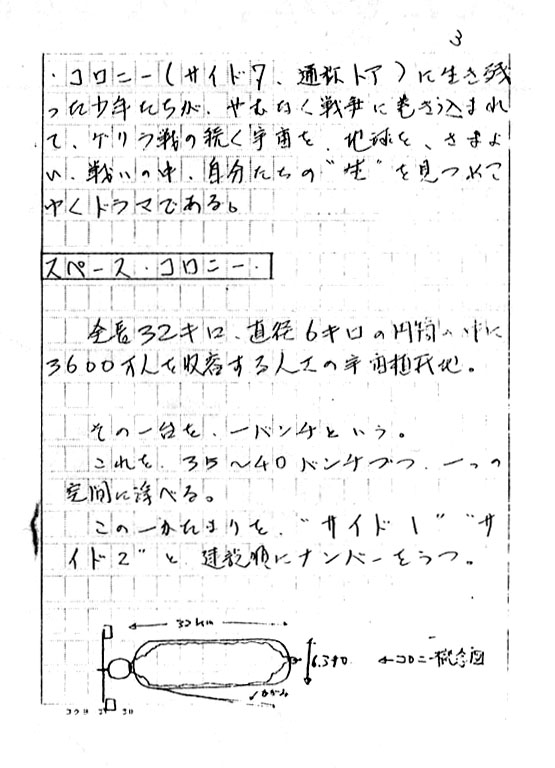 3
・コロニー(サイド7、通称トア)に生き残
った少年たちが、やむなく戦争に巻き込まれ
て、ゲリラ戦の続く宇宙を、地球を、さまよ
い、戦いの中、自分たちの“生”を見つめて
ゆくドラマである。
スペース・コロニー・
全長32キロ、直径6キロの円筒の中に
3600万人を収容する人工の宇宙植民地。
その一台を、一バンチという。
これを、35〜40バンチづつ、一つの
空間に浮べる。
この一かたまりを、“サイド1”“サ
イド2”と、建設順にナンバーをうつ。
32km
6.4km
←コロニー概念図
かがみ
コクヨ
20